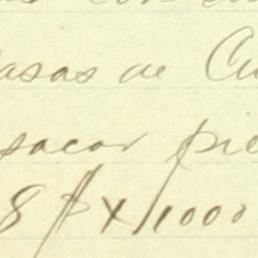 casas de Cu
sacar pie
8 $ x 1000